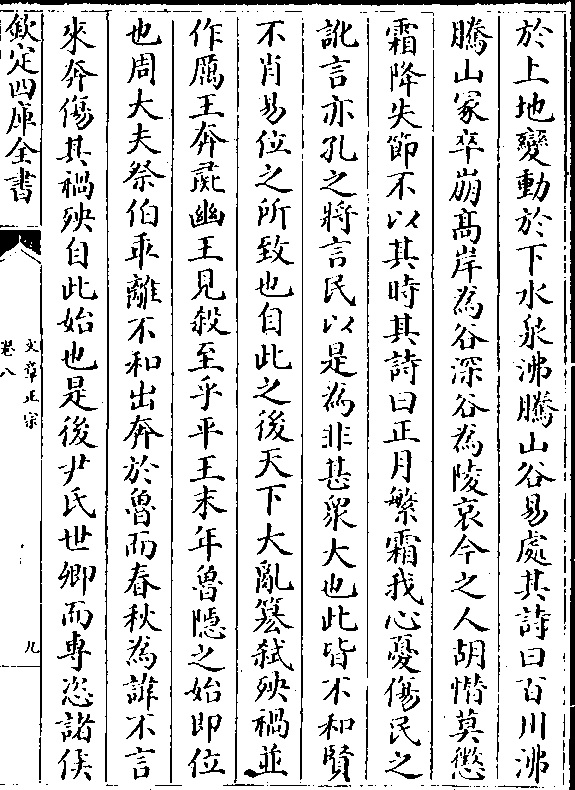 於上地變動於下水泉沸騰山谷易處其詩曰百川沸
騰山冢卒崩髙岸為谷深谷為陵哀今之人胡憯莫懲
霜降失節不以其時其詩曰正月繁霜我心憂傷民之
訛言亦孔之將言民以是為非甚衆大也此皆不和賢
不肖易位之所致也自此之後天下大亂簒弑殃禍並
作厲王奔彘幽王見殺至乎平王末年魯隠之始即位
也周大夫祭伯乖離不和出奔於魯而春秋為諱不言
來奔傷其禍殃自此始也是後尹氏世卿而專恣諸侯
欽定四庫全書
文章正宗
卷八
九